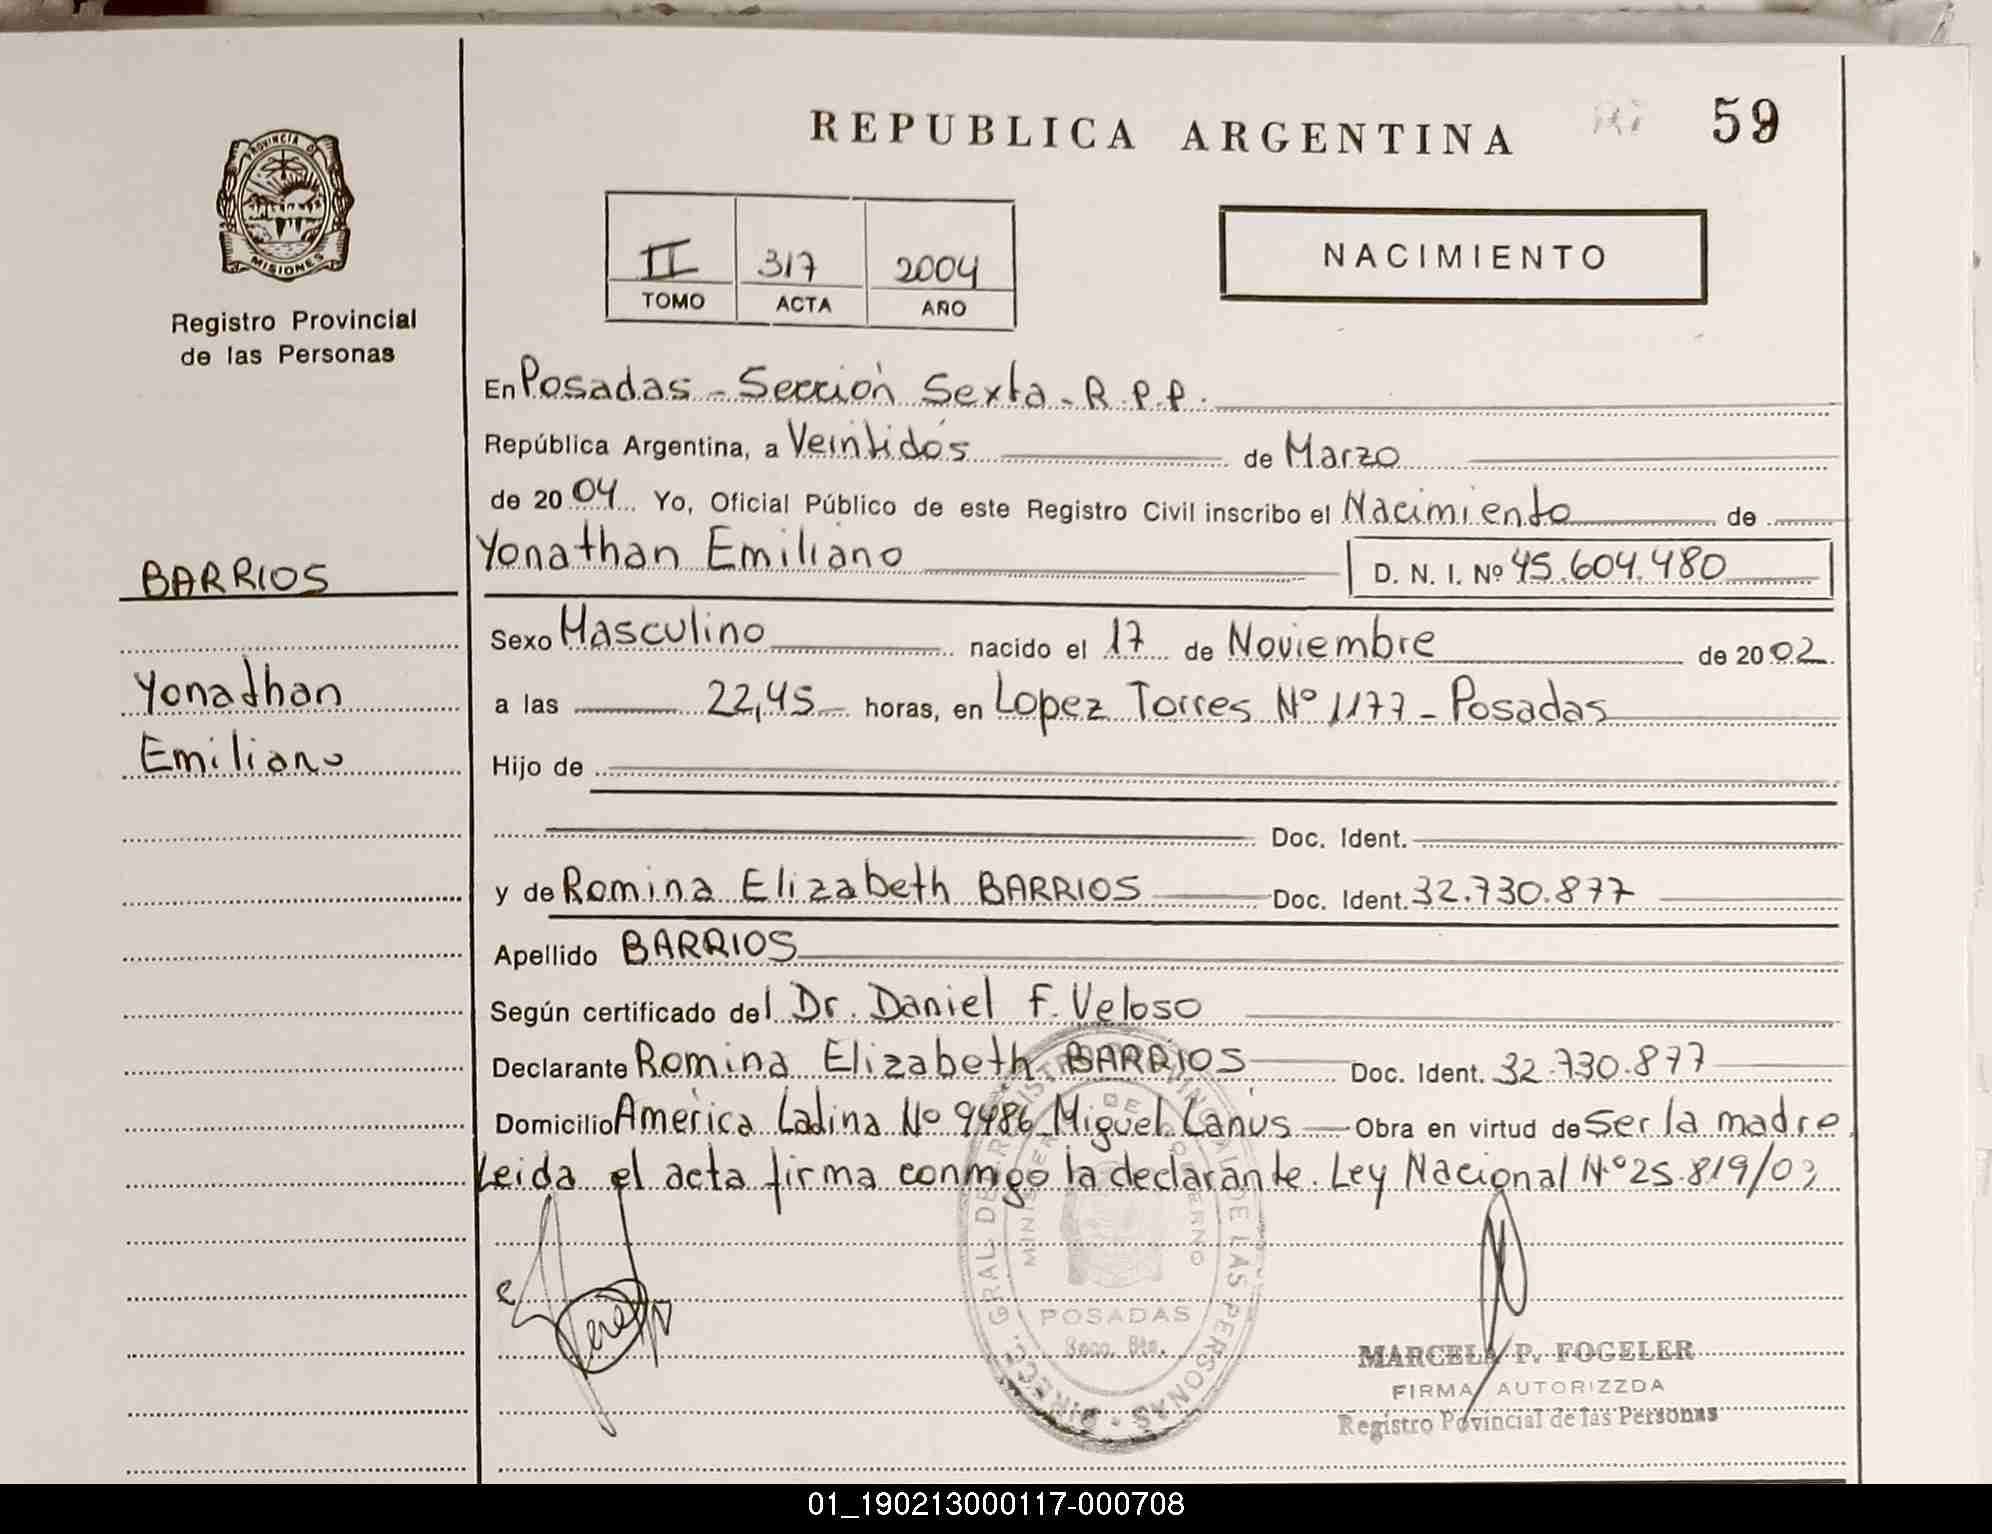 REPUBLICA ARGENTINA
59
PROVINCIA DE
MISIONES
Registro Provincial
de las Personas
II 317 2004
TOMO ACTA AÑO
NACIMIENTO
En Posadas - Sección Sexta - R.P.P.
República Argentina, a Veintidós de Marzo
de 2004 Yo, Oficial Público de este Registro Civil inscribo el Nacimiento de
Yonathan Emiliano D. N. I. Nº 45.604.480
BARRIOS
Yonathan
Emiliano
Sexo Masculino nacido el 17 de Noviembre de 2002
a las 22,45 horas, en Lopez Torres Nº 1177 - Posadas
Hijo de
Doc. Ident.
y de Romina Elizabeth BARRIOS Doc. Ident. 32.730.877
Apellido BARRIOS
Según certificado del Dr. Daniel F. Veloso
Declarante Romina Elizabeth BARRIOS Doc. Ident. 32.730.877
Domicilio América Latina No 9486 Miguel Lanús Obra en virtud de Ser la madre
Leida el acta firma conmigo la declarante. Ley Nacional Nº 25.819/03
DIRECC. GRAL DE REGISTRO PROVINCIAL DE LAS PERSONAS
MINISTERIO DE GOBIERNO
POSADAS
Secc. 6ta.
MARCELA P. FOGELER
FIRMA AUTORIZZDA
Registro Povincial de las Personas
01_190213000117-000708